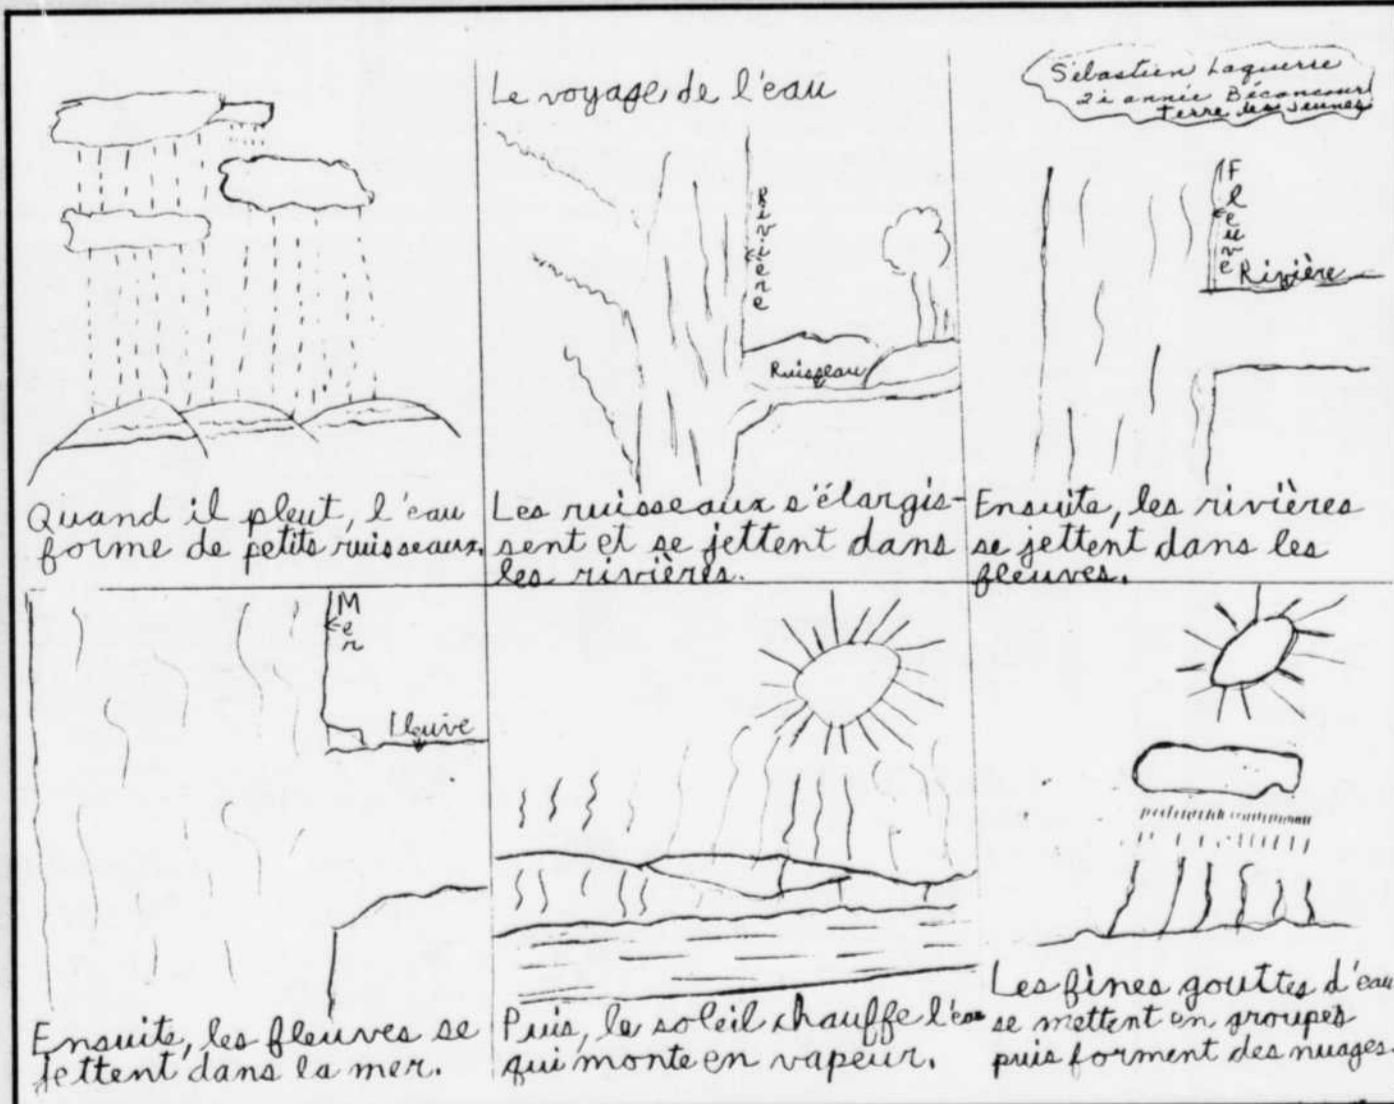 Le voyage de l'eau
Sébastien Laquerre
2è année Bécancour
Terre des Jeunes
Rivière
Ruisseau
Fleuve
Rivière
Quand il pleut, l'eau
forme de petits ruisseaux.
Les ruisseaux s'élargis-
sent et se jettent dans
les rivières.
Ensuite, les rivières
se jettent dans les
fleuves.
Mer
Fleuve
Ensuite, les fleuves se
jettent dans la mer.
Puis, le soleil chauffe l'eau
qui monte en vapeur.
Les fines gouttes d'eau
se mettent en groupes
puis forment des nuages.